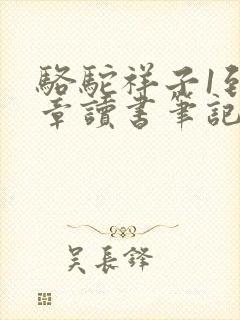 駱駝祥子1
章讀書筆記
吳長鋒